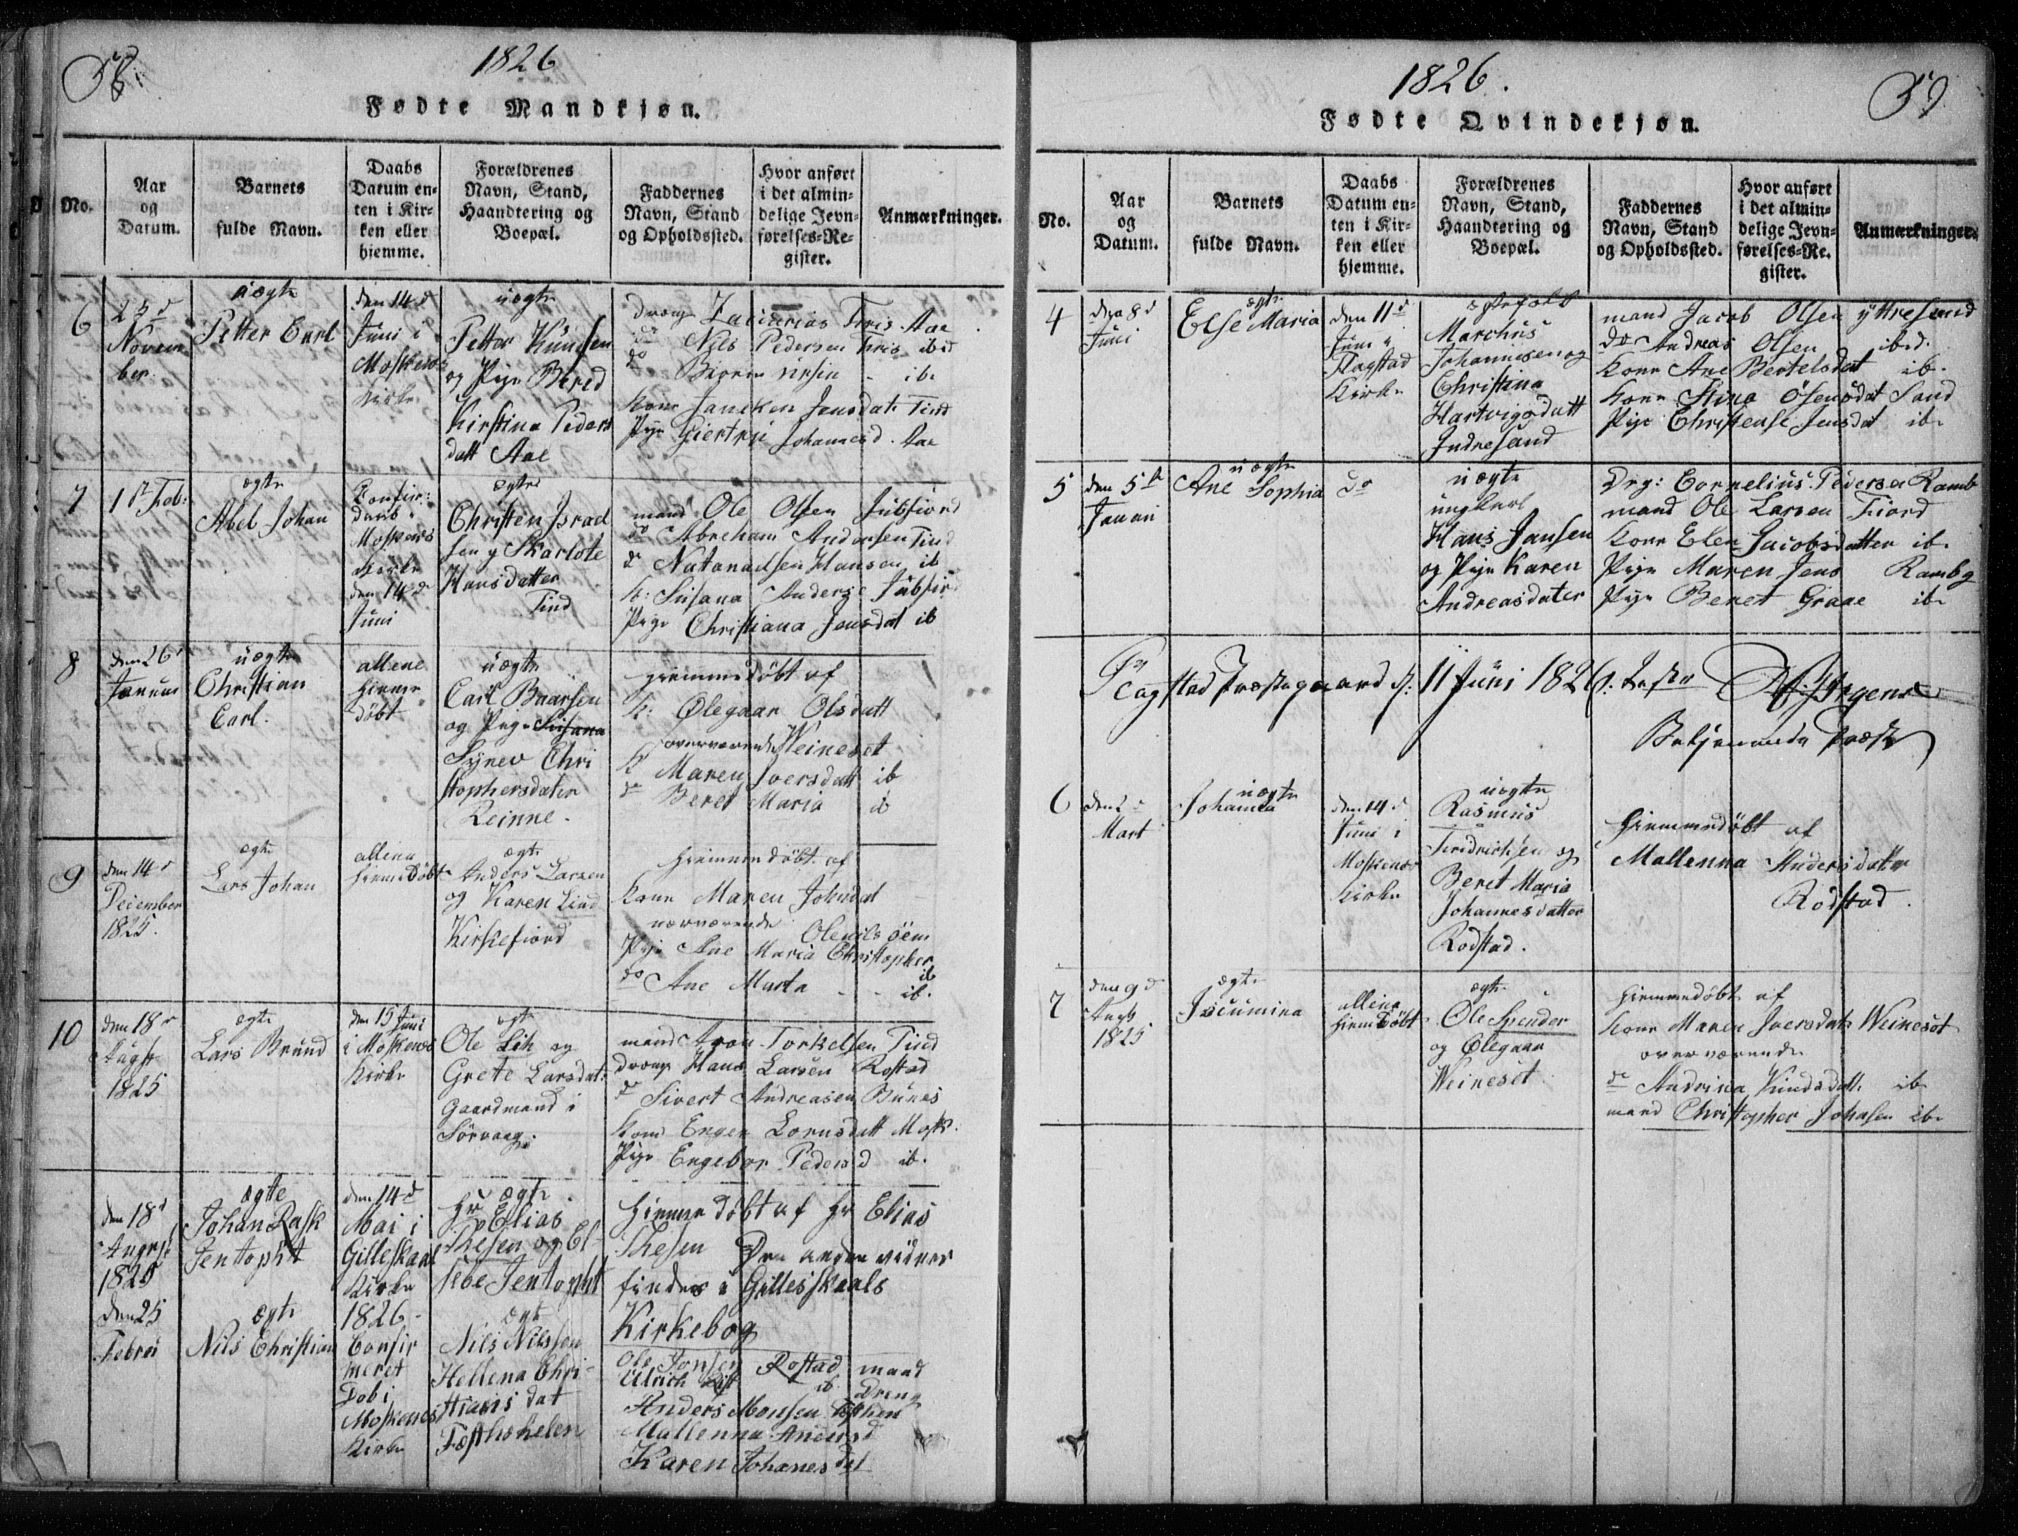 58.
1826
Fødte Mandkjøn.
No.
Aar
og
Datum.
Barnets
fulde Navn.
Daabs
Datum en-
ten i Kir-
ken eller
hjemme.
Forældrenes
Navn, Stand,
Haandtering og
Boepæl.
Faddernes
Navn, Stand
og Opholdssted.
Hvor anført
i det almin-
delige Jevn-
førelses-Re-
gister.
Anmærkninger.
6
25d
Novem
ber.
uægte
Petter Carl
den 14d
Juni i
Moskenes
Kirke
uægte
Petter Knudsen
og Pige Bered
Kirstina Peders
datt Aae
dreng Zacharias Aae
do Nils Pedersen ibd
do ib.
Kone Janeken Jensdat. Tind
Pige Giertrü Johannesd. Aae
7
1ste Feb:
ægte
Abel Johan
Confir:
daab i
Moskenes
Kirke
den 14d
Juni
ægte
Christen Israel
sen og Skarlote
Hansdatter
Tind
mand Ole Olsen Julfiord
do Abraham Andersen Tind
do Natanaelsen Hansen ib
K: Susana Anders
Pige Christiana Jensdat ib
8
den 26d
Januar
uægte
Christian
Carl.
allene
hieme
døbt
uægte
Carl Baarsen
og Pige Susana
Synev Chri
stophersdater
Reinne.
hiemmedøbt af
K: Olegaar Olsdatt
overværende Weineset
K Maren Iversdatt ib
do Beret Maria ib
9
den 14d
Decimber
1825.
ægte
Lars Johan
allene
hiemedøbt
ægte
Anders Larsen
og Karen Lind
Kirkefiord
hiemmedøbt af
Kone Maren Johndat
nærværende
Pige Ane Maria Christopher
ib
do Ane Marta - - ib.
10
den 18d
Augst
1825
ægte
Lars Brund
den 15 Juni
i Moskenes
Kirke
ægte
Ole Lih og
Grete Larsdat:
Gaardmand i
Sørvaag.
mand Aron Torkelsen Tind
dreng Hans Larsen Rostad
do Sivert Andreasen Bunes
Kone Engen Lornsdatt Mosk.
Pige Engebor Pedersd ib.
den 18d
August
1825
ægte
Johan Rask
Jentopht
den 14d
Mai i
Gilleskaal
Kirke
1826
ægte
Hr Elias
Thesen og El-
sebe Jentopht
hiemme døbt af Hr Elias
Thesen Den anden vidner
findes i Gillesskaals
Kirkebog
den 25
Febroi
ægte
Nils Christian
Confir
meret
Dob i
Moskenes
Kirke
ægt
Nils Nilssen
Hellena Chri-
stians dat
Fæsthehelen
Ole Jonsen Rostad mand
Ulrich ib. Dreng
Anders Monsen
Mallenna Andersd
Karen Johanes dat
1826.
59
Fødte Qvindekjøn.
No.
Aar
og
Datum.
Barnets
fulde Navn.
Daabs
Datum en-
ten i Kir-
ken eller
hjemme.
Forældrenes
Navn, Stand,
Haandtering og
Boepæl.
Faddernes
Navn, Stand
og Opholdssted.
Hvor anført
i det almin-
delige Jevn-
førelses-Re-
gister.
Anmærkninger.
4
den 8d
Juni
ægte
Else Maria
den 11d
Juni i
Flagstad
Kirke
ægtefolk
Marchus
Johannesen og
Christina
Hartvigsdatt
Indresand
mand Jacob Olsen yttresand
do Andreas Olsen ibd.
Kone Ane Bertelsdat ib.
Kone Stina Olsensdat Sand
Pige Christense Jensdat ib.
5
den 5te
Januari
uægte
Ane Sophia
do
uægte
ungkarl
Hans Jansen
og Pige Karen
Andreasdater
Drg: Cornelius Pedersen Ramb
mand Ole Larsen Fiord
Kone Elen Jacobsdatter ib.
Pige Maren Jens Rambg
Pige Beret Graae ib.
Flagstad Præstegaard d: 11 Juni 1826.
Betjenende Præst
6
den 2d
Mart
uægte
Johanna
den 14d
Juni i
Moskenes
Kirke
uægte
Rasmus
Fredrichsen og
Beret Maria
Johannesdatter
Rodstad.
hiemmedøbt af
Mallenna Andersdatter
Rodstad.
7
den 9d
1825
ægte
Jocumina
allene
hiemdøbt
ægte
Ole Spender
og Olegaar
Weineset
hiemmedøbt af
Kone Maren Iversdat Weineset
overværende
do Andrina Knudsdatt. ib
mand Christopher Johnsen ib.